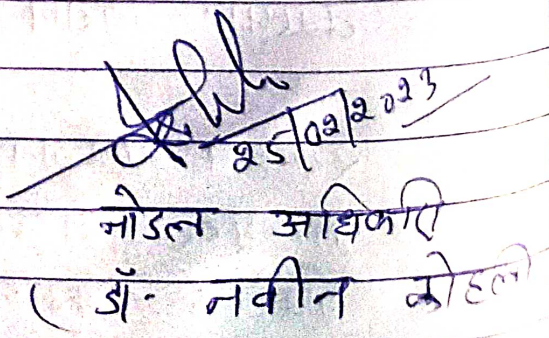 25/02/2023
नोडल अधिकारी
( डॉ- नवीन कोहली